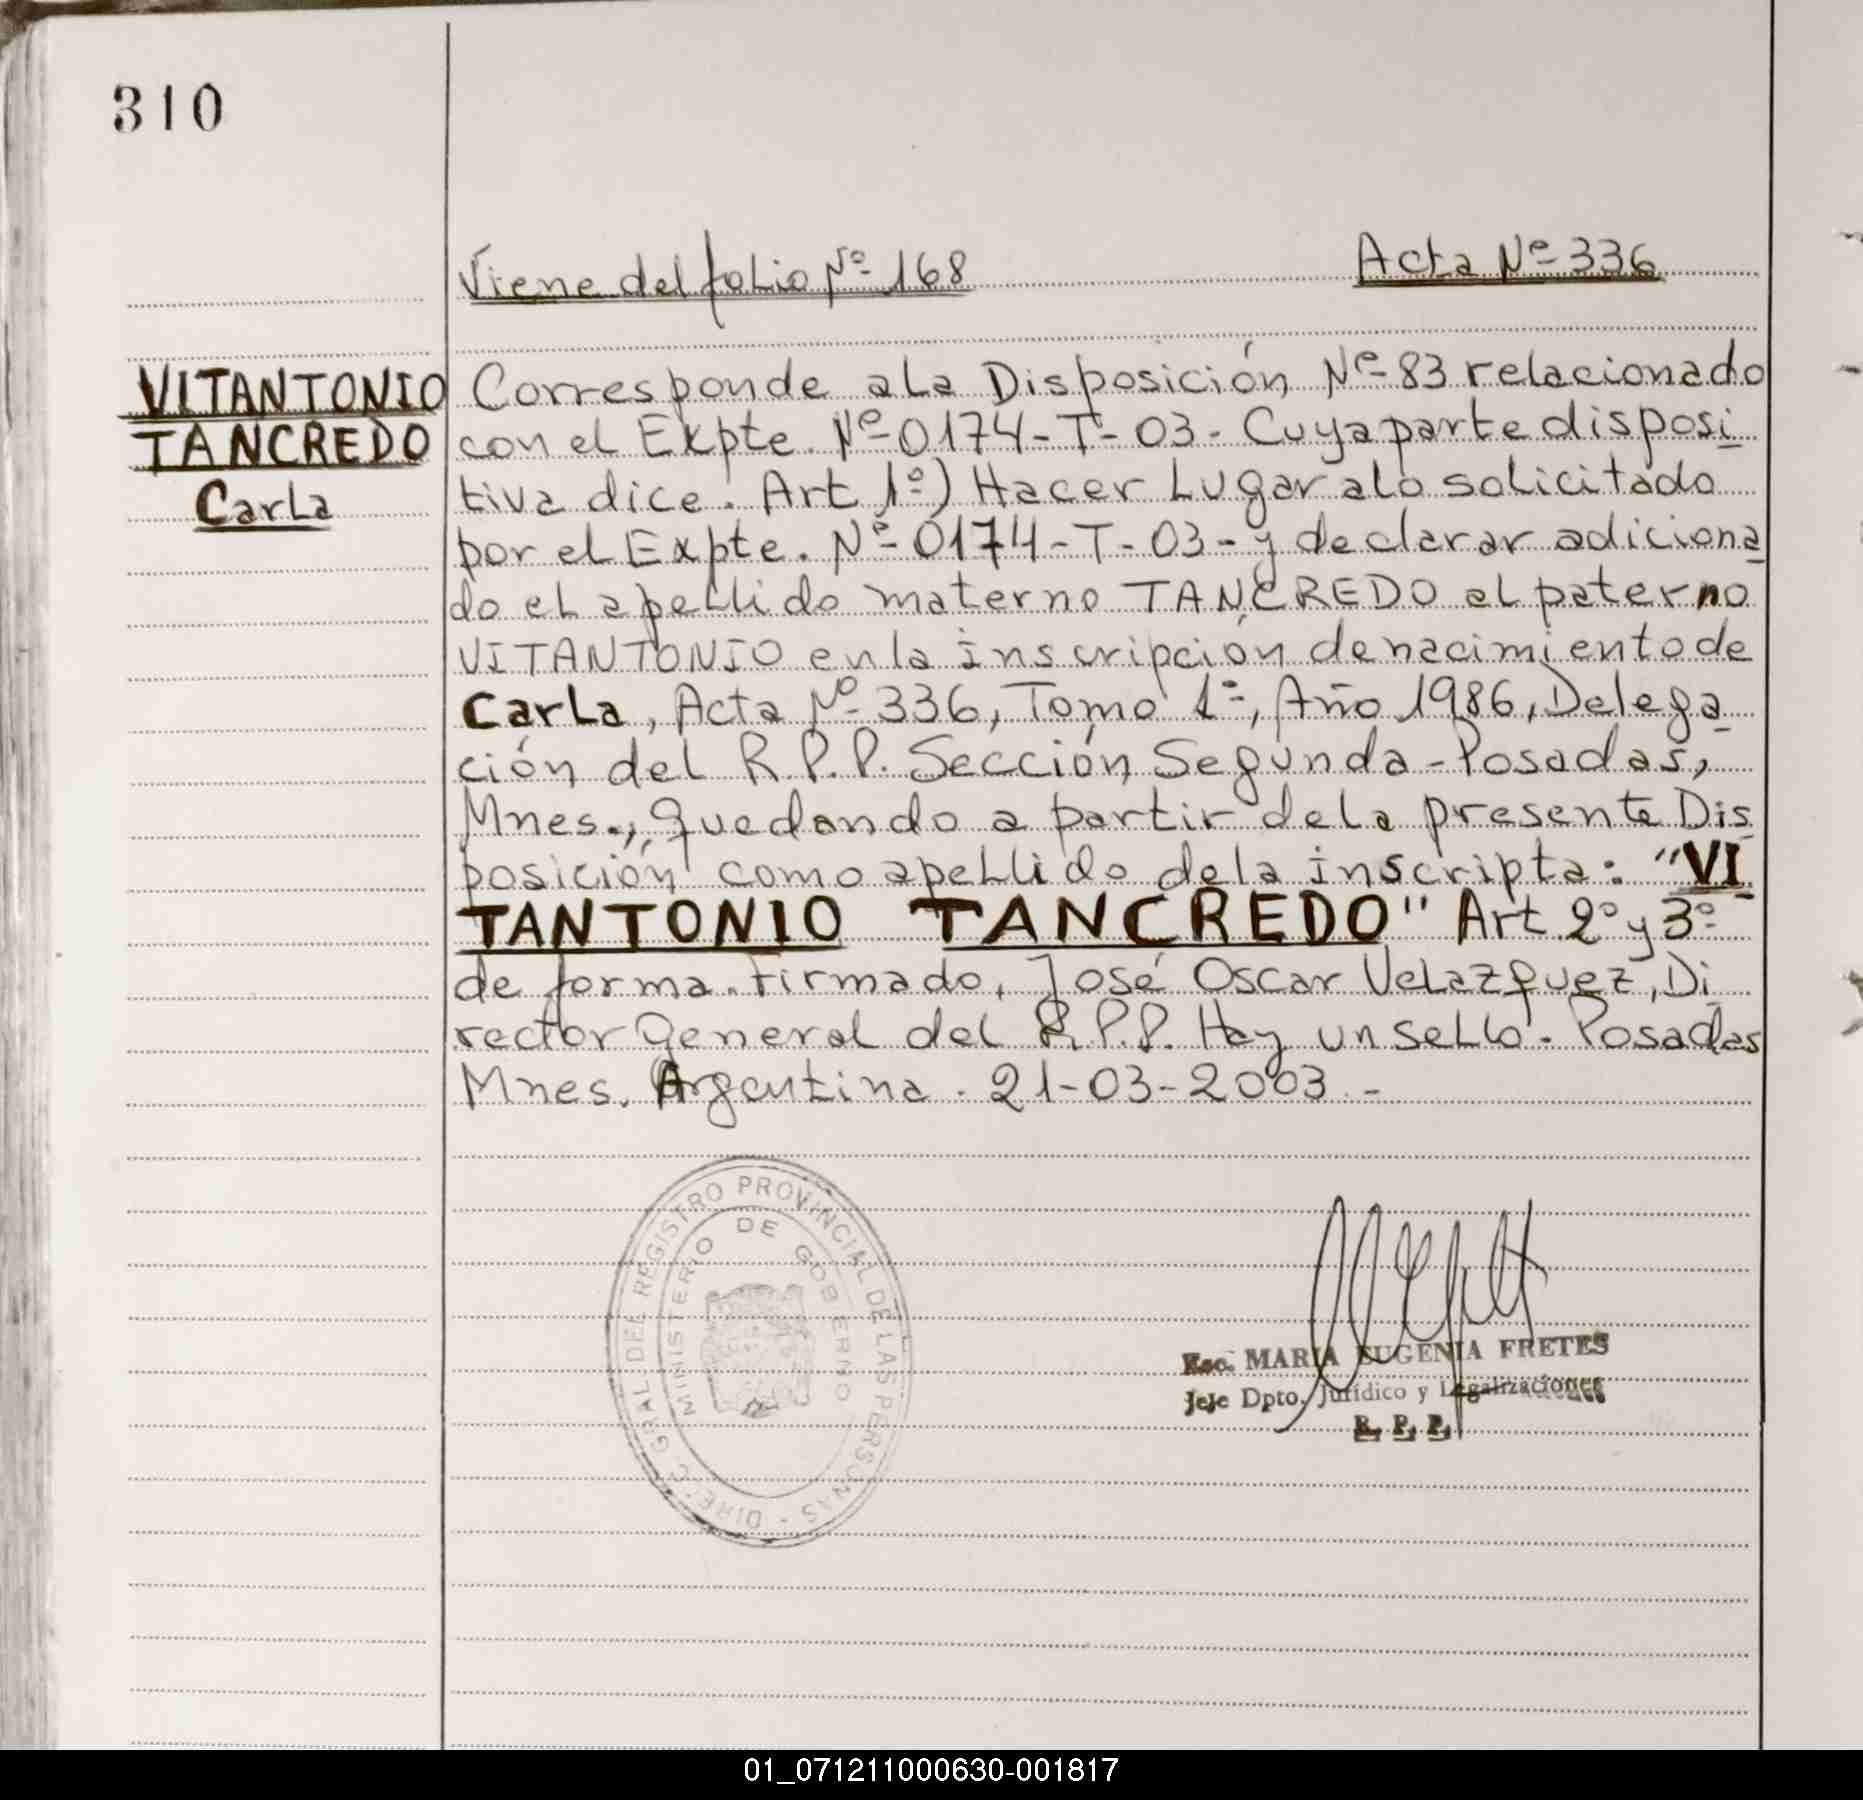 310
Viene del folio Nº 168
Acta Nº 336
VITANTONIO
TANCREDO
Carla
Corresponde a la Disposición Nº 83 relacionado
con el Expte. Nº 0174-T-03- Cuya parte disposi
tiva dice: Art 1º) Hacer Lugar a lo solicitado
por el Expte. Nº 0174-T-03- y declarar adiciona
do el apellido materno TANCREDO al paterno
VITANTONIO en la inscripción de nacimiento de
Carla, Acta Nº 336, Tomo 1º, Año 1986, Delega
ción del R.P.P. Sección Segunda - Posadas,
Mnes., quedando a partir de la presente Dis
posición como apellido de la inscripta: "VI
TANTONIO TANCREDO" Art 2º y 3º
de forma. Firmado, José Oscar Velazquez, Di
rector General del R.P.P. Hay un sello. Posadas
Mnes. Argentina. 21-03-2003.-
DIREC. GRAL DEL REGISTRO PROVINCIAL DE LAS PERSONAS -
MINISTERIO DE GOBIERNO
Esc. MARIA EUGENIA FRETES
Jefe Dpto. Jurídico y Legalizaciones
R. P. P.
01_071211000630-001817